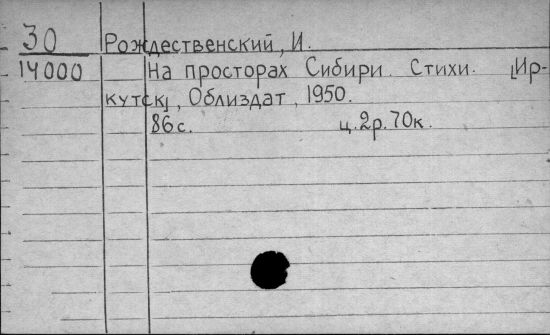 30 Рождественский, И.
14000 На просторах Сибири. Стихи. [Ир-
кутск], Облиздат, 1950.
86с. ц.2р.70к.